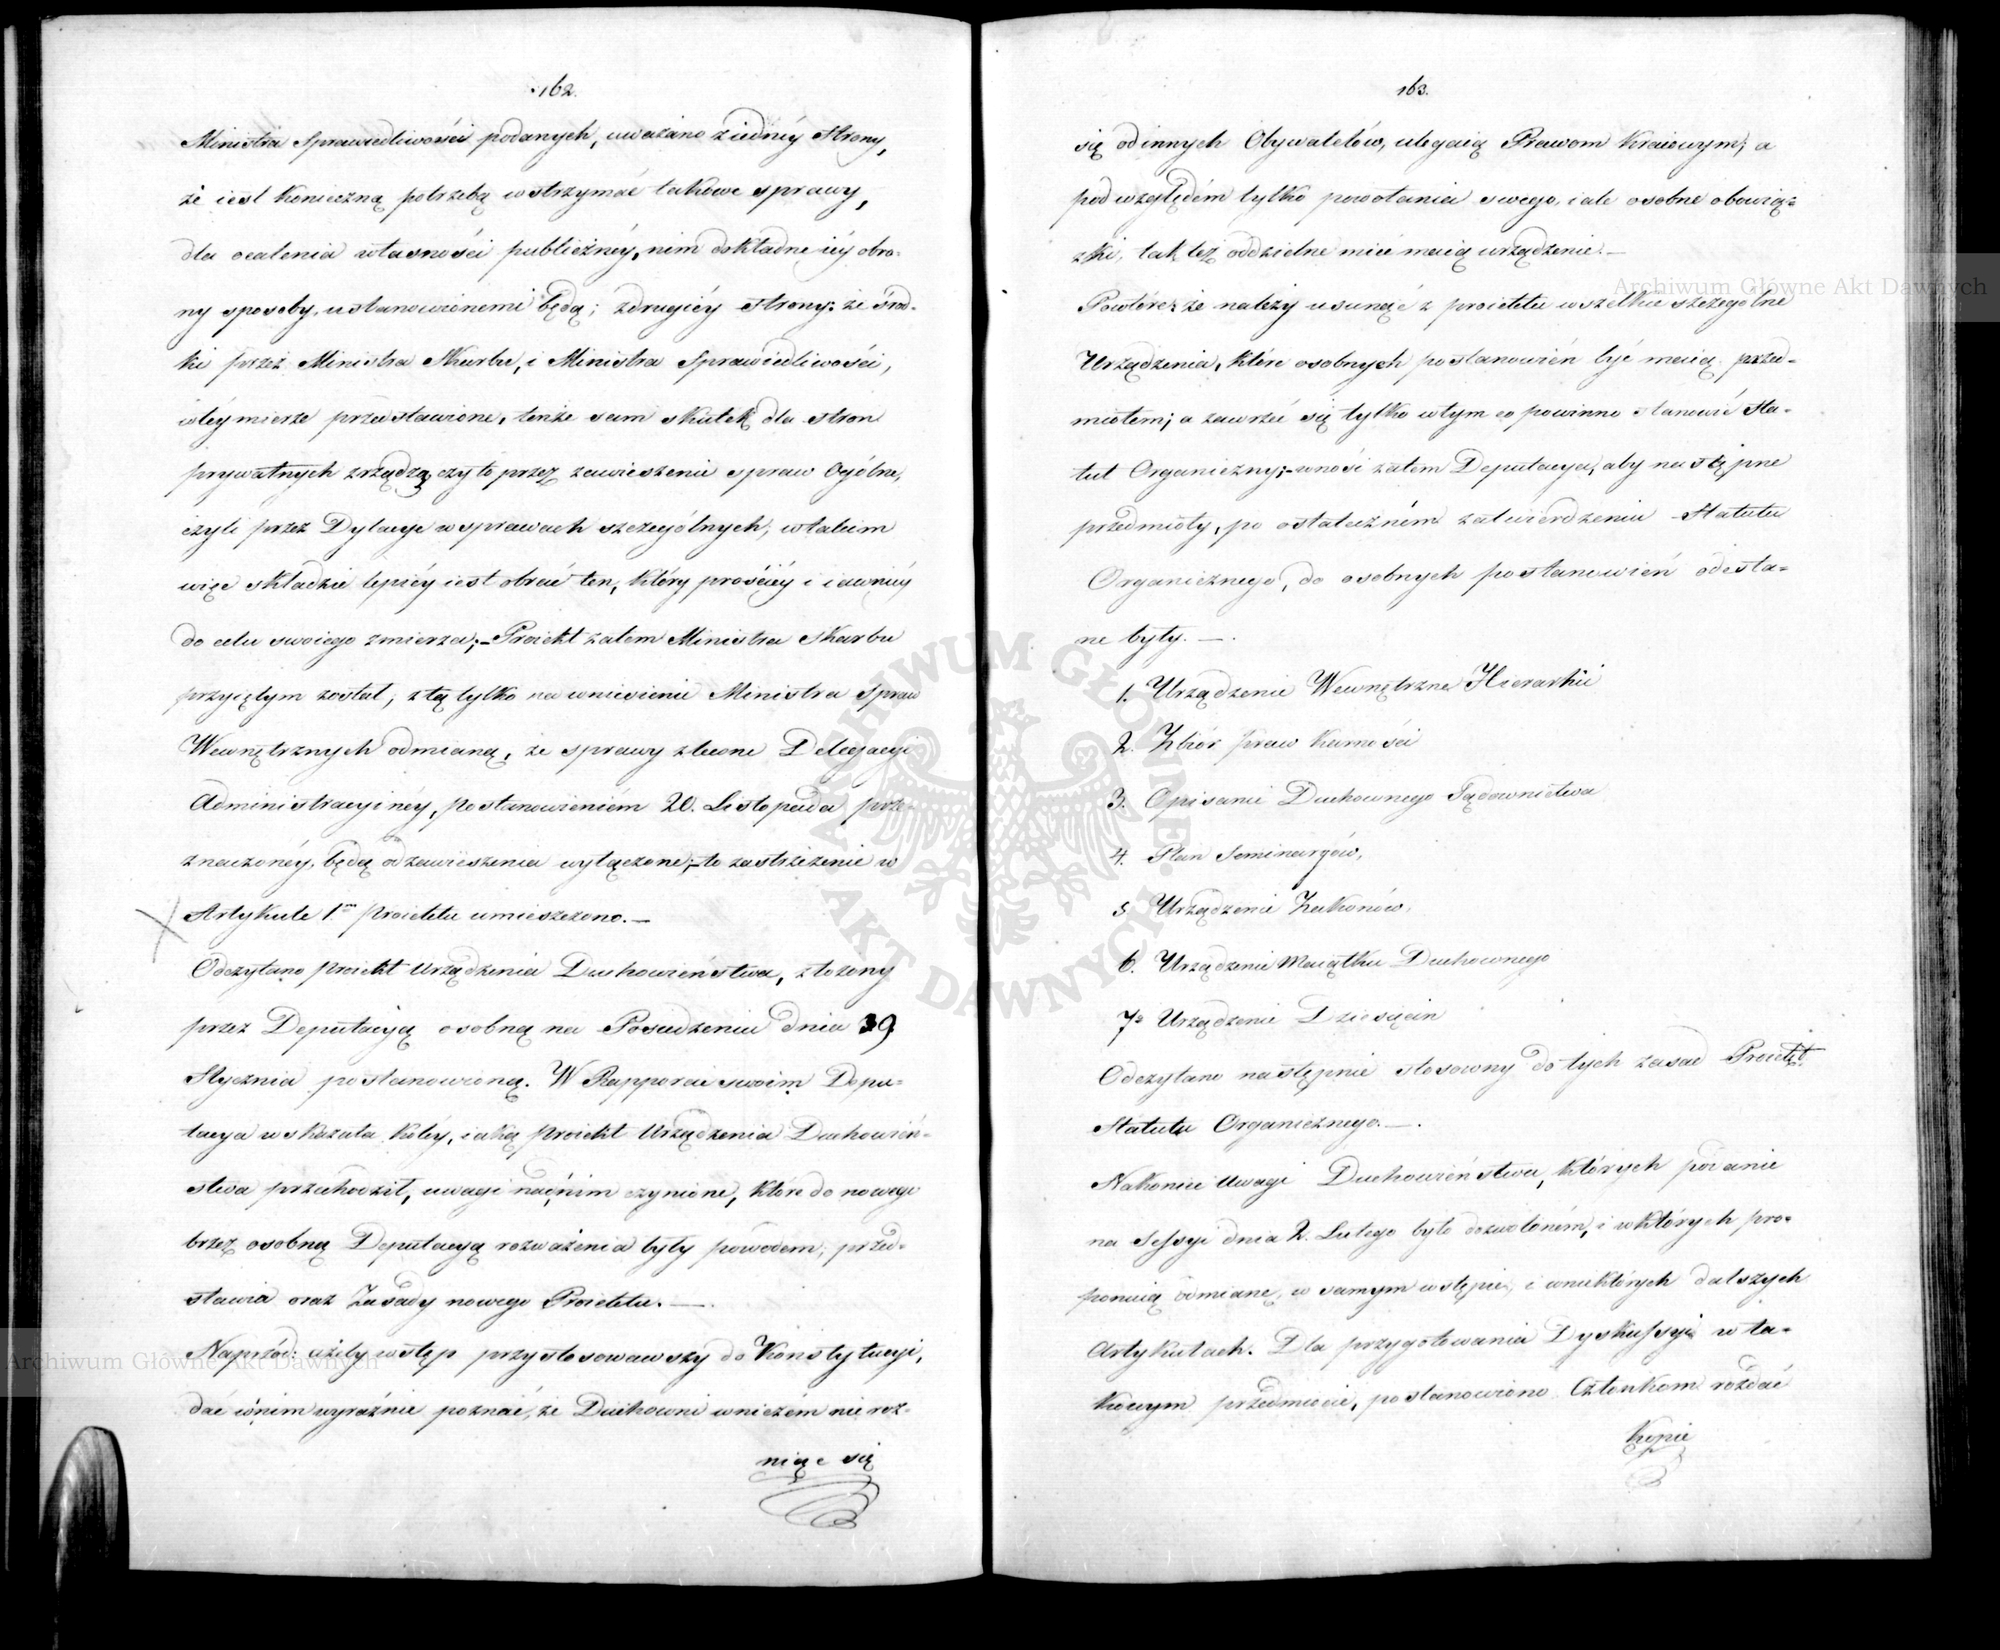 162.
Ministra Sprawiedliwości podanych, uważano z iednéy Strony,
że iest konieczną potrzebą wstrzymać takowe sprawy,
dla ocalenia własności publicznéy, nim dokładne iéy obro-
ny sposoby, ustanowionemi będą; z drugiéy strony: że środ-
ki przez Ministra Skarbu, i Ministra Sprawiedliwości,
w téy mierze przedstawione, tenże sam skutek dla stron
prywatnych zrządzą czy to przez zawieszenie spraw Ogólne,
czyli przez Dylacye w sprawach szczególnych; w takim
więc składzie lepiéy iest obrać ten, który prościéy i iawniéy
do celu swoiego zmierza;- Proiekt zatem Ministra Skarbu
przyiętym został, z tą tylko na wniesienie Ministra Spraw
Wewnętrznych odmianą, że sprawy zlecone Delegacyi
Administracyinéy, postanowieniém 20. Listopada prze-
znaczonéy, będą od zawieszenia wyłączone;- to zastrzeżenie w
Artykule 1m proiektu umieszczono.—
Odczytano proiekt Urządzenia Duchowieństwa, złożony
przez Deputacyą osobną na Posiedzeniu dnia 39
Stycznia postanowioną. W Rapporcie swoim Depu-
tacya wskazała koléy, iaką proiekt Urządzenia Duchowień-
stwa przechodził, uwagi nad nim czynione, które do nowego
przez osobną Deputacyą rozważenia były powodem; przed-
stawia oraz Zasady nowego Proiektu.—.
Naprzód: ażeby wstęp przystosowawszy do Konstytucyi,
dać w nim wyraźnie poznać, że Duchowni w niczém nie róż-
niąc się
163.
się od innych Obywatelów, ulegaią Prawom Kraiowym; a
pod względém tylko powołania swego, iak osobne obowią-
zki, tak też oddzielne mieć maią urządzenie.—
Powtóre: że należy usunąć z proiektu wszelkie szczególne
Urządzenia, które osobnych postanowień być maią przed-
miotem; a zawrzéć się tylko w tym co powinno stanowić Sta-
tut Organiczny;- wnosi zatem Deputacya, aby następne
przedmioty, po ostateczném zatwierdzeniu Statutu
Organicznego, do osobnych postanowień odesła-
ne były.—.
1. Urządzenie Wewnętrzne Hierarkii
2. Zbiór praw Karności
3. Opisanie Duchownego Sądownictwa
4. Plan Seminaryów,
5 Urządzenie Zakonów,
6. Urządzenie Maiątku Duchownego
7o Urządzenie Dziesięcin
Odczytano następnie stosowny do tych zasad Proiekt
Statutu Organicznego.—.
Nakoniec Uwagi Duchowieństwa, których podanie
na Sessyi dnia 2. Lutego było dozwoloném, i w których pro-
ponuią odmianę, w samym wstępie, i w niektórych dalszych
Artykułach. Dla przygotowania Dyskussyi w ta-
kowym przedmiocie, postanowiono Członkom rozdać
kopie
Archiwum Główne Akt Dawnych
Archiwum Główne Akt Dawnych
ARCHIWUM GŁÓWNE AKT DAWNYCH